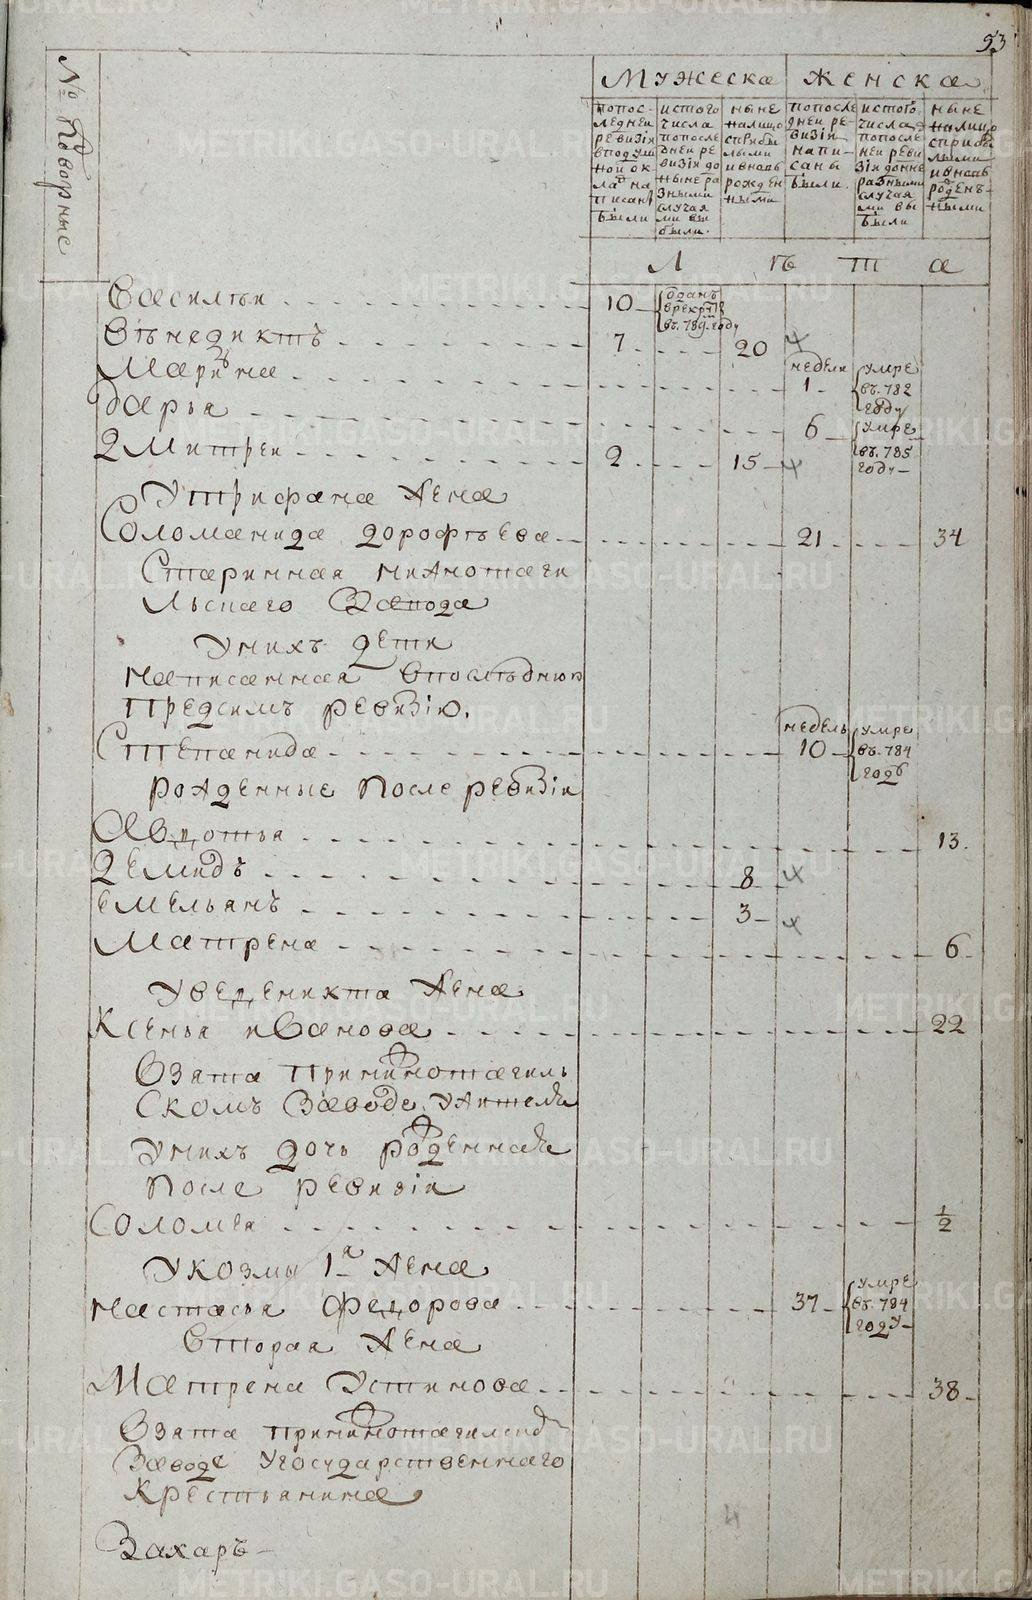 53
№ Дворные
Мужеска
Женска
попос-
ледней
ревизiи
вподуш
ной ок-
ладъ на
писаны
были
истого
числа
попосле
дней ре
визiи до
ныне ра
зными
случая
ми вы
были.
ныне
налицо
сприбы
лыми
ивновь
рожден
ными
попосле
дней ре-
визiи
напи-
саны
были.
истого
числа
попосле
ней реви
зiи доныне
разными
случая
ми вы
были
ныне
налицо
сприбы
лыми
ивновь
рожденъ-
ными
Л ѣ т а
Василѣи 10 отданъ
врекруты
въ 789 году
Вѣнедиктъ 7 20
Марина недели 1 умре
въ 782
году
Дарья 6 умре
въ 785
году
Дмитреи 2 15
Утрифана жена
Соломанида Дорофѣева 21 34
Старинная нижнотаги
льскаго завода
Унихъ дети
написанная впослѣднюю
предсимъ ревизiю.
Степанида недель 10 умре
въ 784
годѣ
рожденные после ревизiи
Авдотья 13
Демидъ 8
Емельянъ 3
Матрена 6
Уведеникта жена
Ксенья Иванова 22
Взята принижнотагиль
скомъ заводе ужителя
Унихъ дочь рожденная
после ревизiи
Соломея 1/2
Укозмы 1я жена
Настасья Федорова 37 умре
въ 784
году
Вторая жена
Матрена Устинова 38
Взята принижнотагилскомъ
заводе угосударственнаго
крестьянина
Захаръ